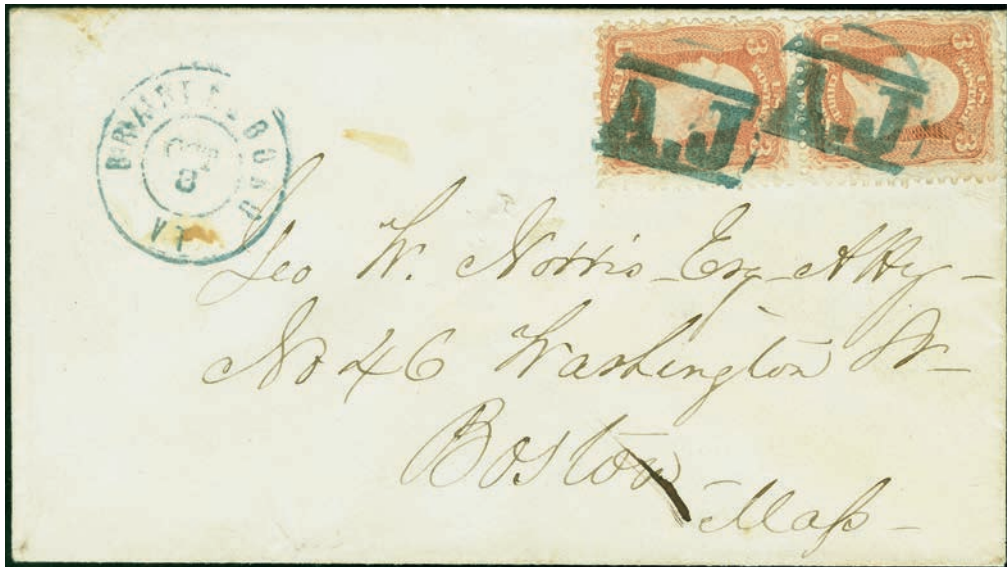 BRATTLEBORO
8
VT
3 3
U.S. POSTAGE
3 3
A.J. A.J.
Geo W. Norris Esq Atty
No 46 Washington St
Boston
Mass